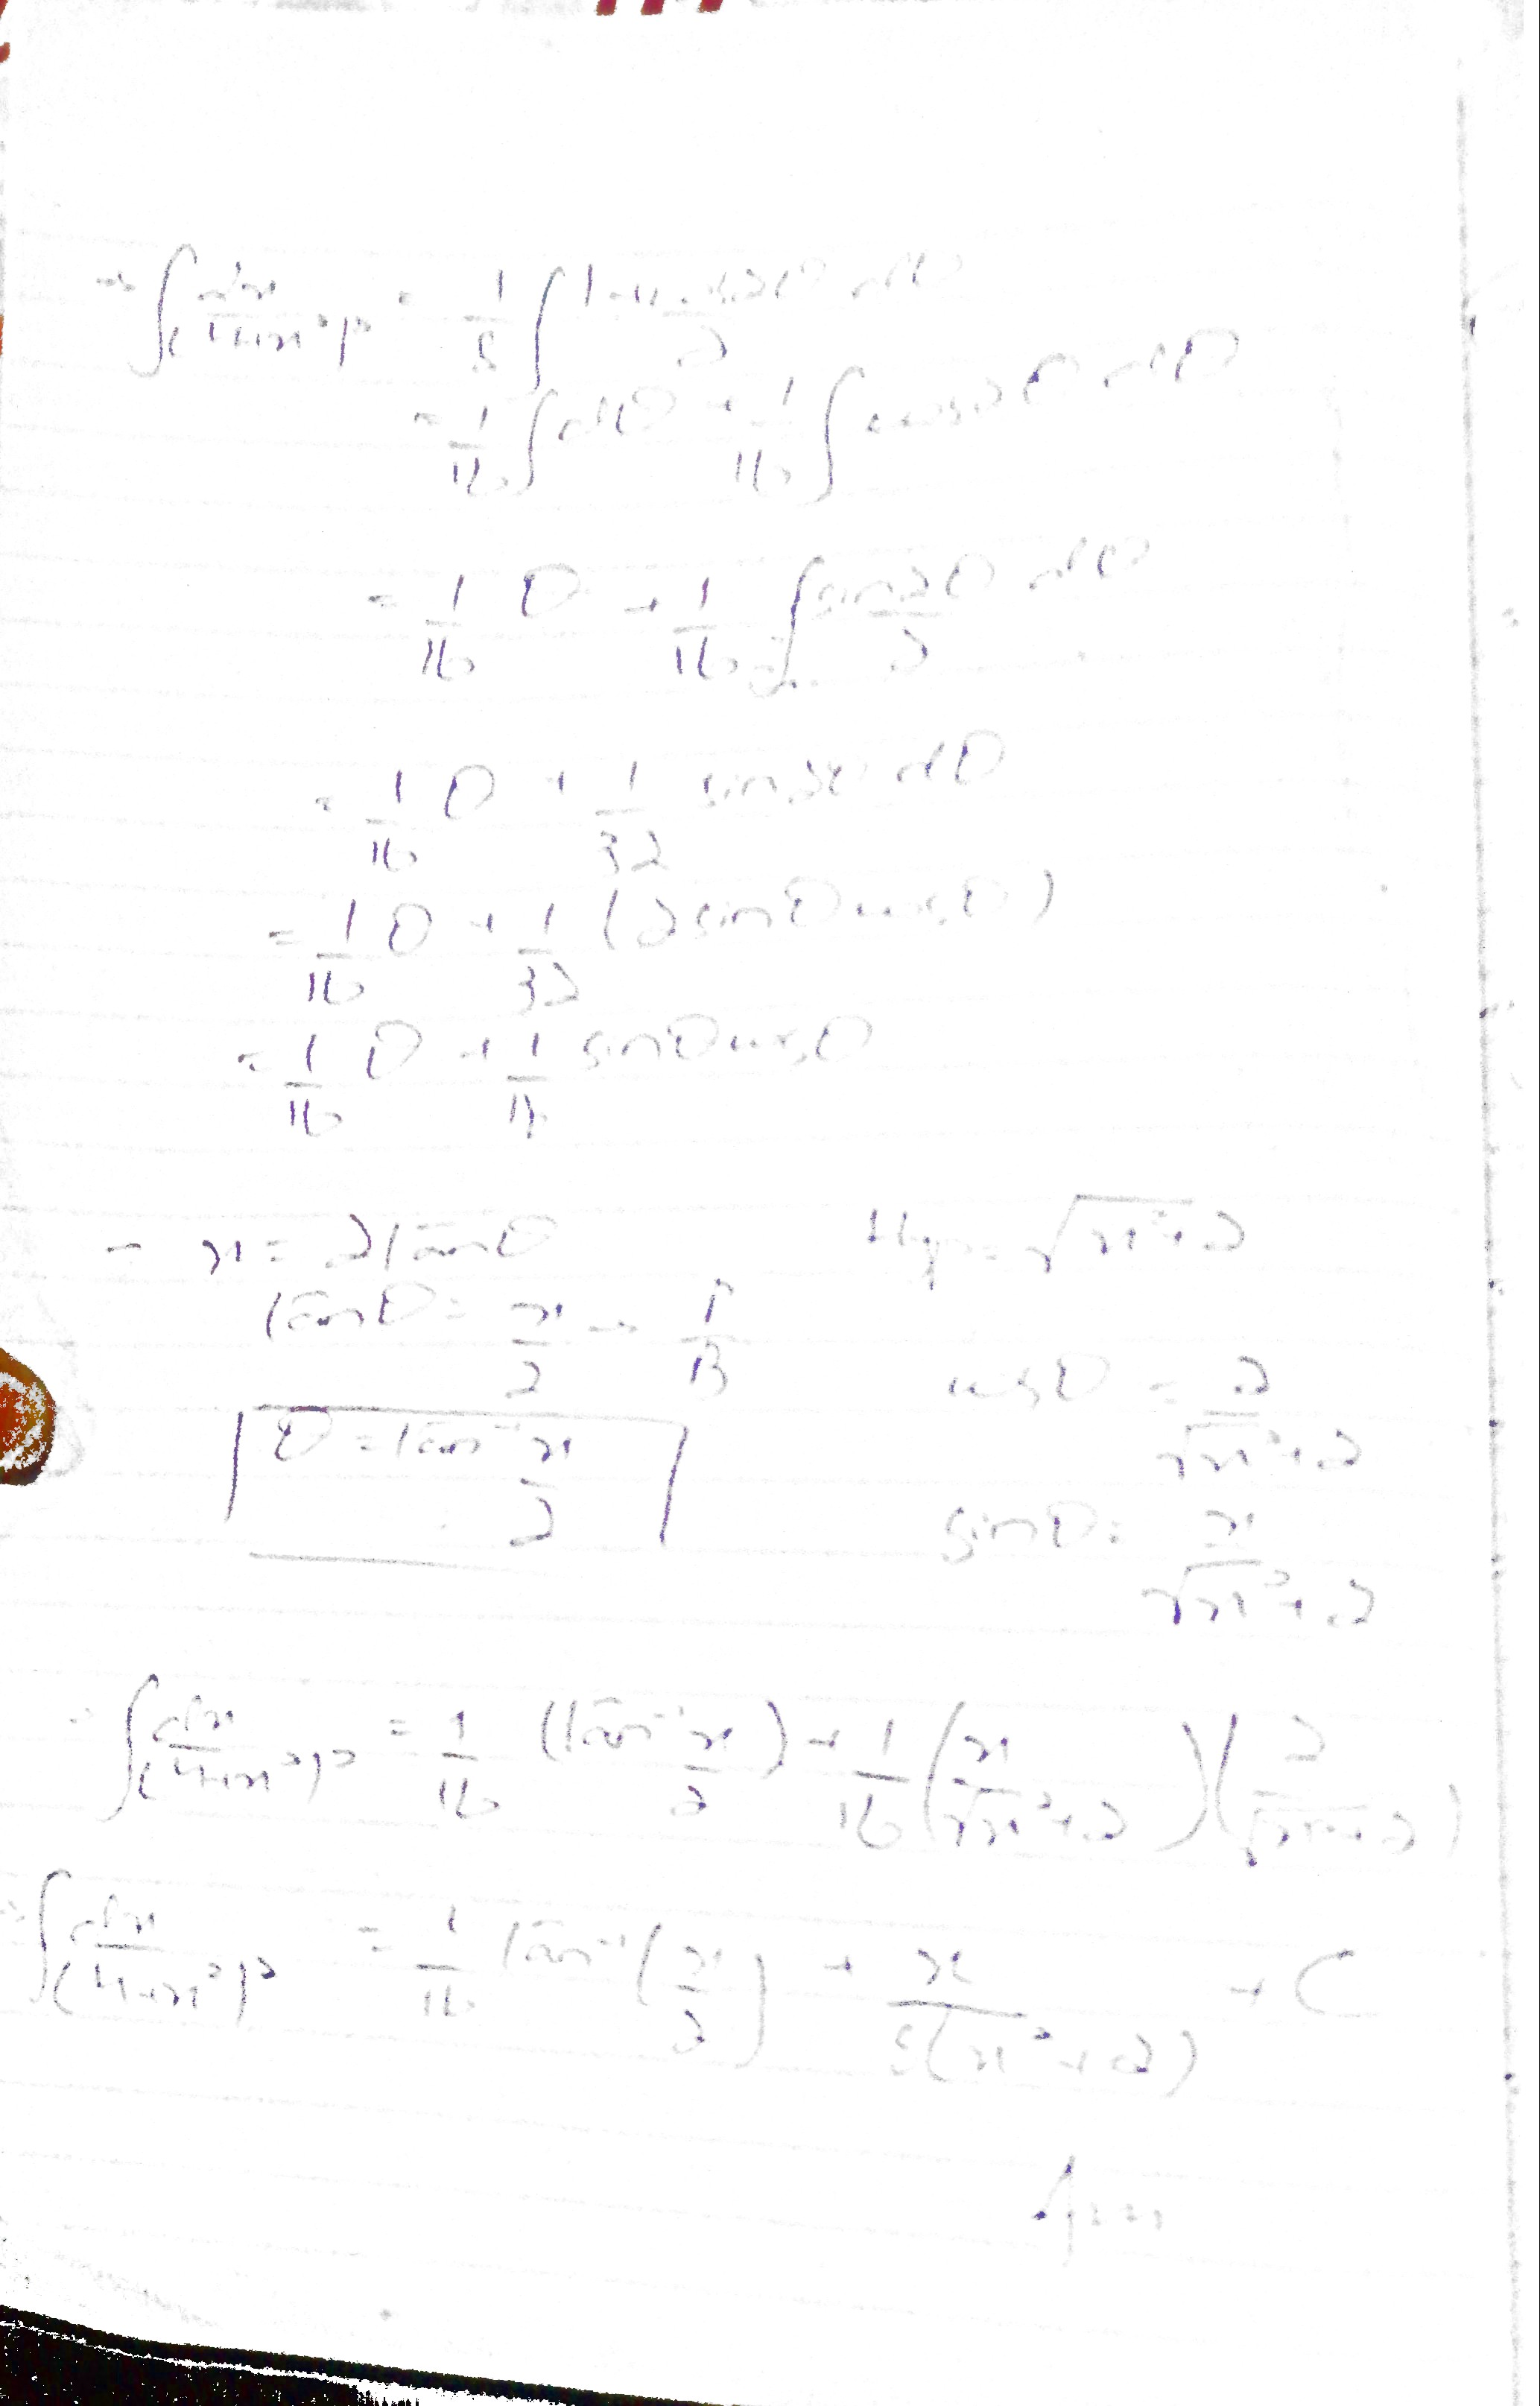 → ∫ dx/(4+x²)² = 1/8 ∫ 1+cos2θ/2 dθ
= 1/16 ∫ dθ + 1/16 ∫ cos2θ dθ
= 1/16 θ + 1/16 ∫ sin2θ/2 dθ
= 1/16 θ + 1/32 sin2θ dθ
= 1/16 θ + 1/32 (2sinθcosθ)
= 1/16 θ + 1/16 sinθcosθ
→ x = 2tanθ
tanθ = x/2 → P/B
θ = tan⁻¹ x/2
Hyp = √(x²+2)
cosθ = 2/√(x²+2)
sinθ = x/√(x²+2)
→ ∫ dx/(4+x²)² = 1/16 (tan⁻¹ x/2) + 1/16 (x/√(x²+2)) (2/√(x²+2))
→ ∫ dx/(4+x²)² = 1/16 tan⁻¹ (x/2) + x/8(x²+2) + C